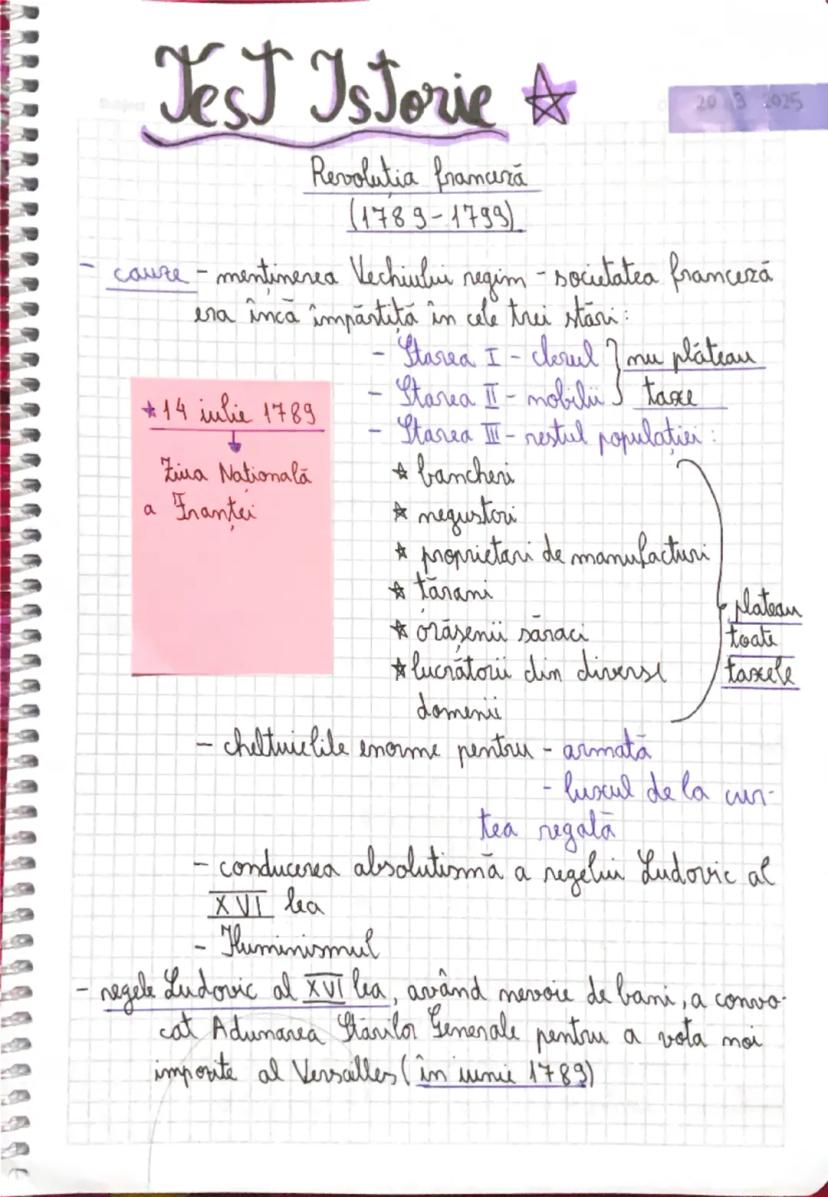 Test Istorie
20 3 2025
Revoluția franceză
(1789-1799)
- cauze - menținerea Vechiului regim - societatea franceză
era încă împărțită în cele trei stări:
- Starea I - clerul } nu plăteau
- Starea II - nobilii } taxe
- Starea III - restul populației:
★ 14 iulie 1789
Ziua Națională
a Franței
★ bancheri
★ negustori
★ proprietari de manufacturi
★ țărani
★ orășenii săraci
★ lucrătorii din diverse
domenii
plateau
toate
taxele
- cheltuielile enorme pentru - armată
- luxul de la cur-
tea regală
- conducerea absolutismă a regelui Ludovic al
XVI lea
- Iluminismul
- regele Ludovic al XVI lea, având nevoie de bani, a convo-
cat Adunarea Stărilor Generale pentru a vota noi
impozite al Versailles (în iunie 1789)